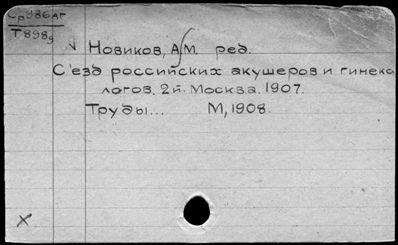 Ср986АГ
Т898д
√ Новиков, А.М. ред.
С'езд российских акушеров и гинеко
логов. 2й. Москва. 1907.
Труды... М, 1908.
х